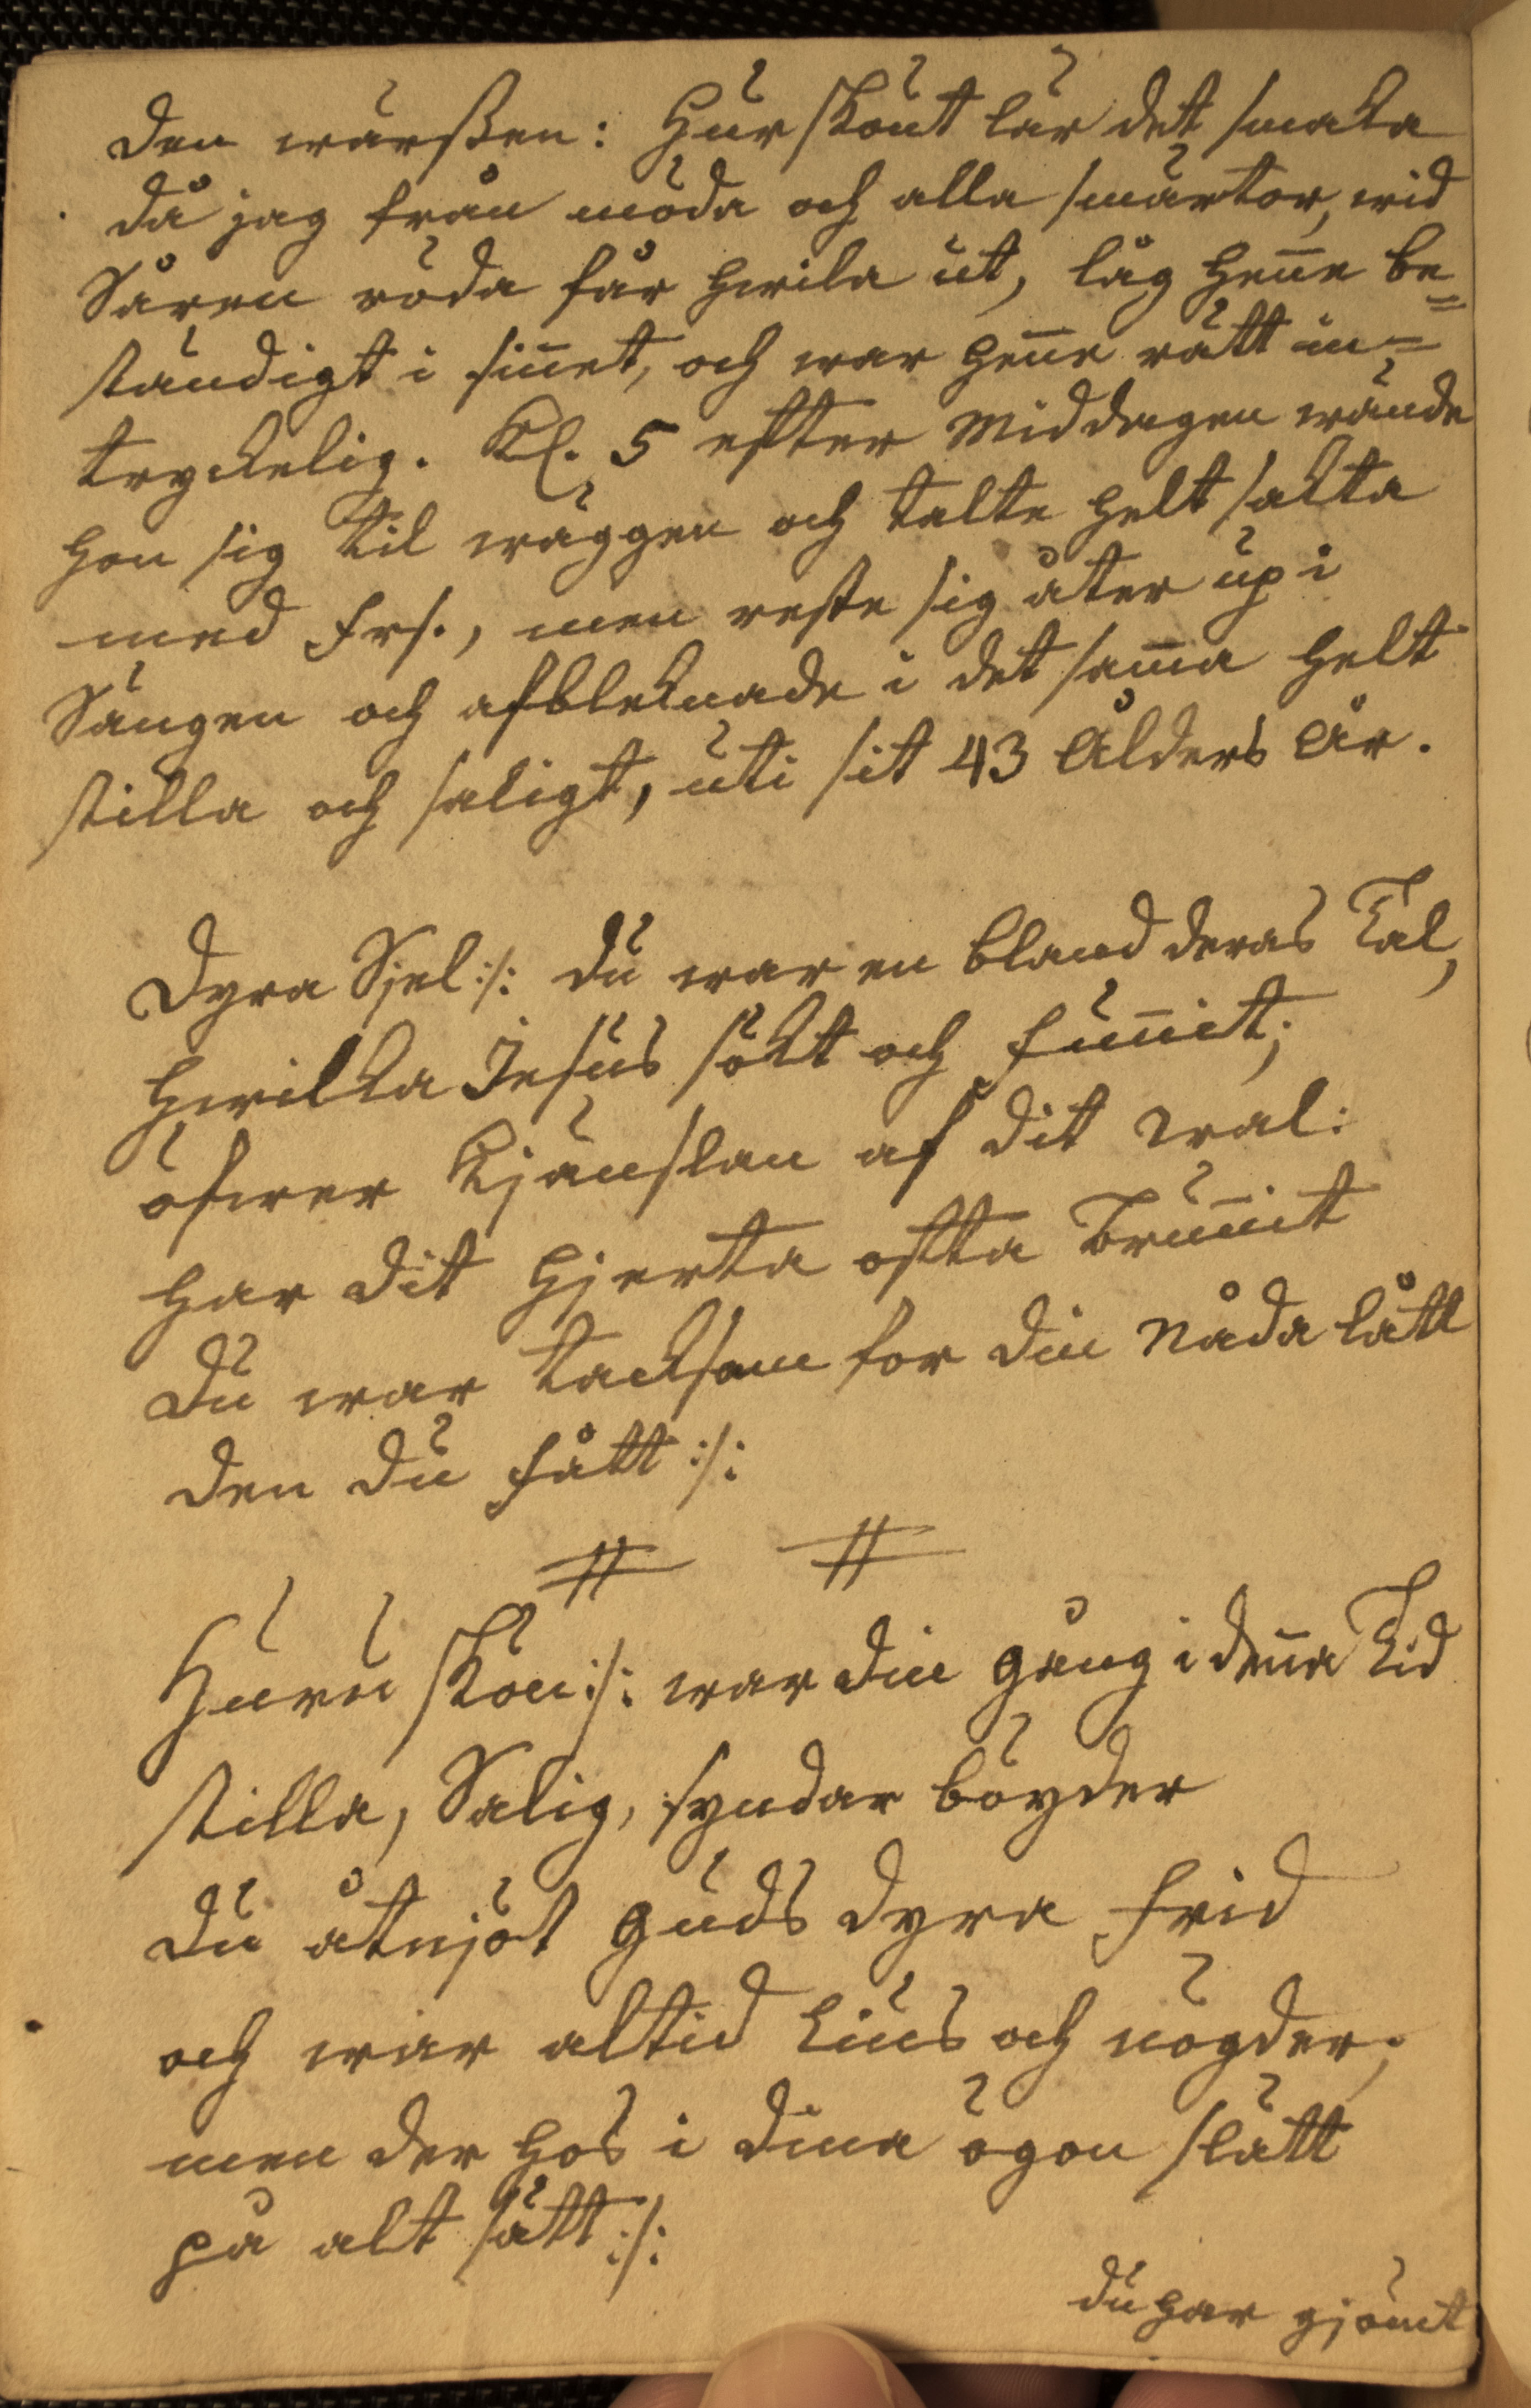 den wärssen: Hur skönt lär det smaka
då jag från möda och alla smärtor, wid
Såren röda får hwila ut, låg hen̄e be=
ständigt i sin̄et, och war hen̄e rätt in=
tryckelig. Kl. 5 efter Middagen wände
hon sig til wäggen och talte helt sakta
med Frs., men reste sig åter up i
Sängen och afbleknade i det sam̄a helt
stilla och saligt, uti sit 43 Ålders År.
Dyra Sjel :/: du war en bland deras Tal,
hwilka Jesus sökt och fun̄it;
öfwer Kjänslan af dit wal:
har dit hjerta ofta brun̄it
Du war tacksam for din Nåda lått
den du fått :/:
Huru skön :/: war din gång i den̄a Tid
stilla, Salig, syndar böyder
Du åtnjöt Guds dyra Frid
och war altid Lius och nögder;
men der hos i dina ögon slätt
på alt sätt :/:
du har gjömt